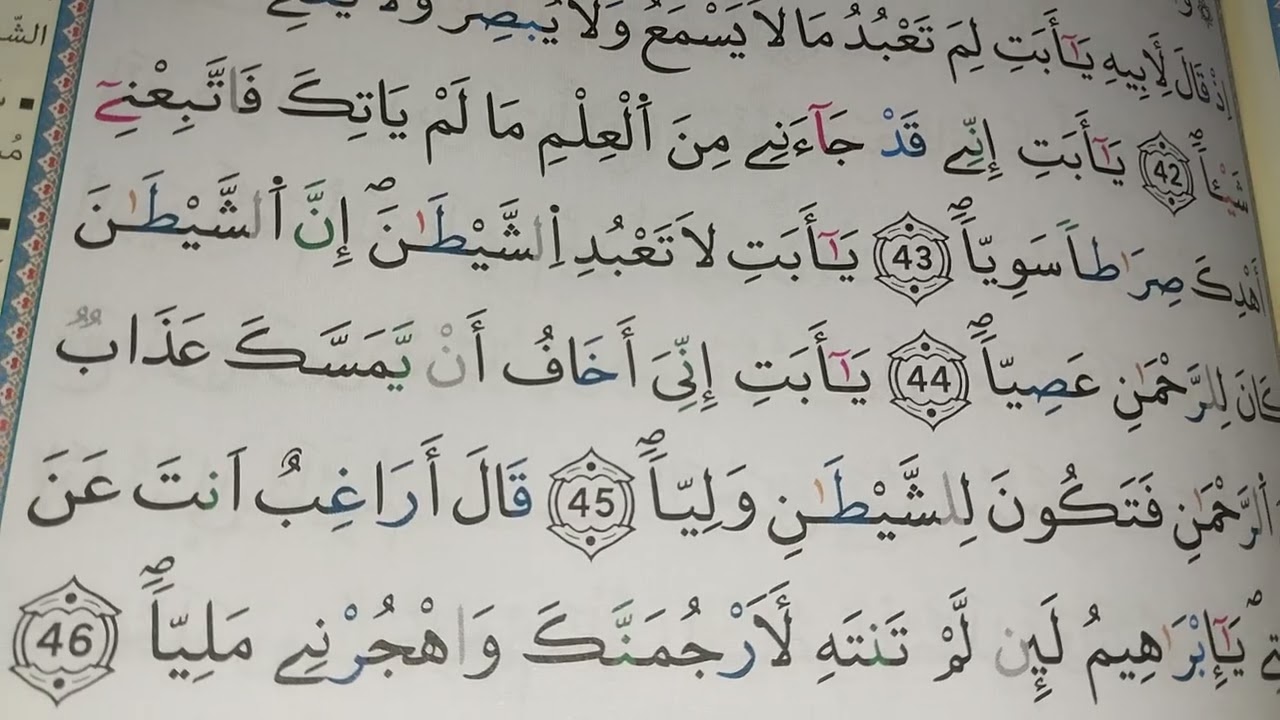 إِذْ قَالَ لِأَبِيهِ يَٰٓأَبَتِ لِمَ تَعْبُدُ مَا لَا يَسْمَعُ وَلَا يُبْصِرُ وَلَا
شَيْـٔاًۖ 42 يَٰٓأَبَتِ إِنِّے قَدْ جَآءَنِے مِنَ اَ۬لْعِلْمِ مَا لَمْ يَاتِكَ فَاتَّبِعْنِےٓ
أَهْدِكَ صِرَٰطاٗ سَوِيّاٗۖ 43 يَٰٓأَبَتِ لَا تَعْبُدِ اِ۬لشَّيْطَٰنَۖ إِنَّ اَ۬لشَّيْطَٰنَ
كَانَ لِلرَّحْمَٰنِ عَصِيّاٗۖ 44 يَٰٓأَبَتِ إِنِّيَ أَخَافُ أَنْ يَّمَسَّكَ عَذَابٞ
اَ۬لرَّحْمَٰنِ فَتَكُونَ لِلشَّيْطَٰنِ وَلِيّاٗۖ 45 قَالَ أَرَاغِبٌ اَنتَ عَنَ
يَٰٓإِبْرَٰهِيمُ لَئِن لَّمْ تَنتَهِ لَأَرْجُمَنَّكَ وَاهْجُرْنِے مَلِيّاٗۖ 46